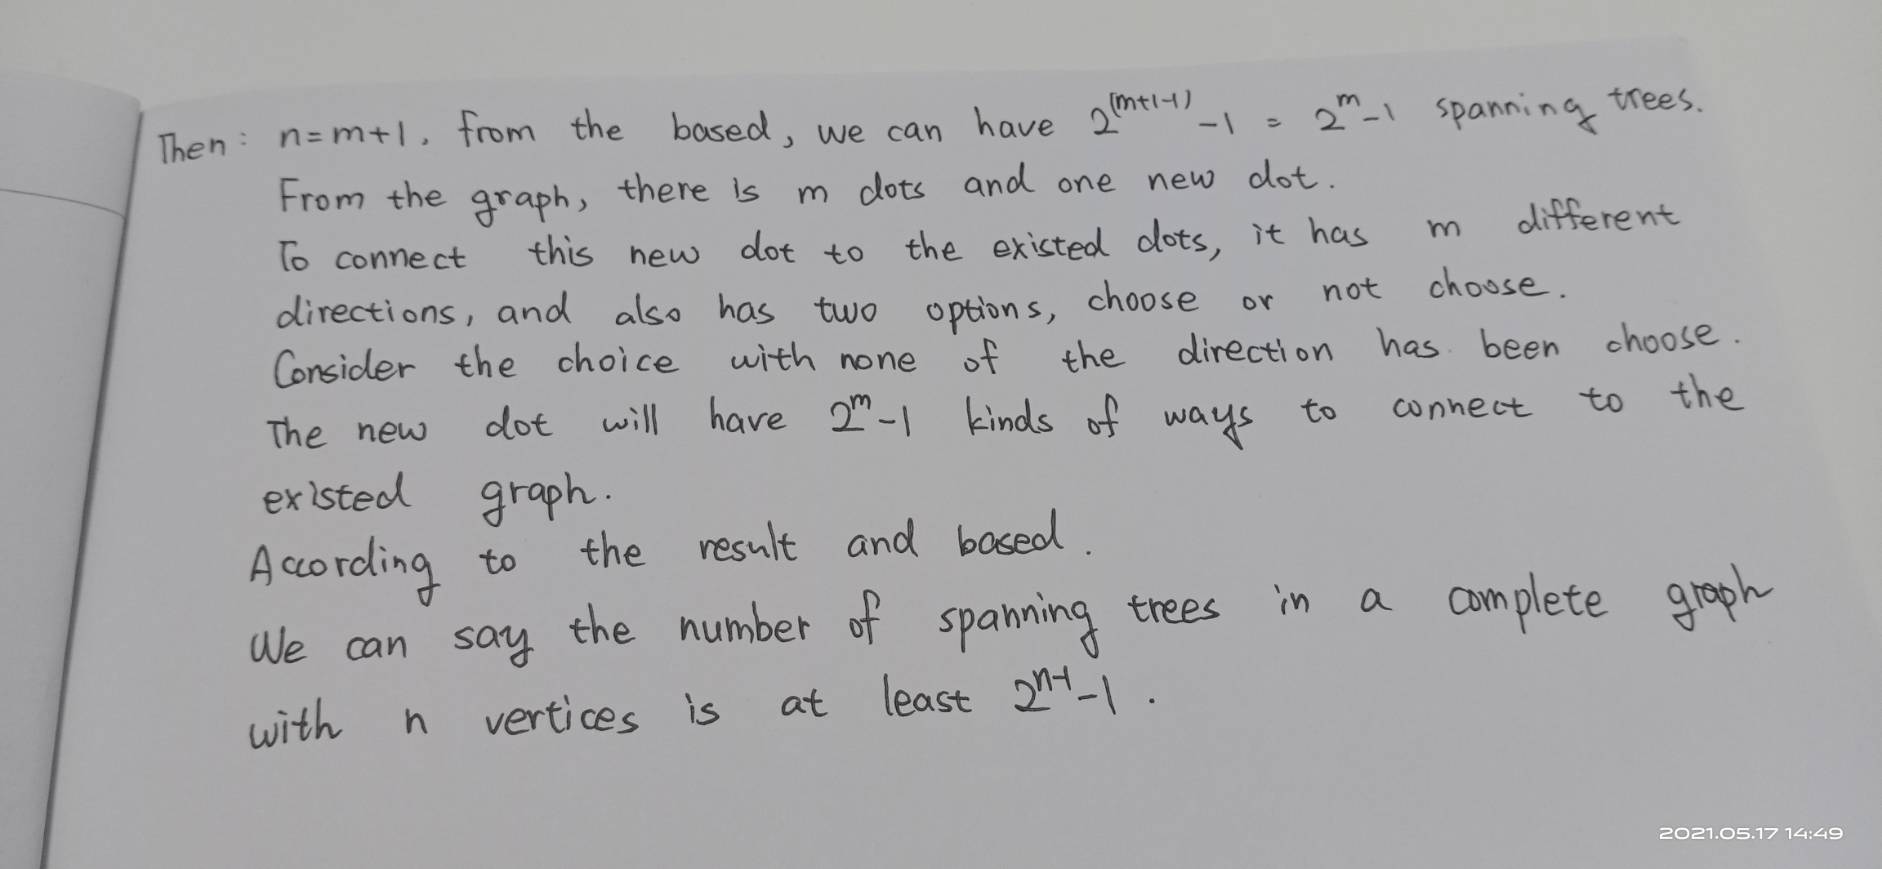 Then: n=m+1, from the based, we can have 2^(m+1-1) -1 = 2^m -1 spanning trees.
From the graph, there is m dots and one new dot.
To connect this new dot to the existed dots, it has m different
directions, and also has two options, choose or not choose.
Consider the choice with none of the direction has been choose.
The new dot will have 2^m -1 kinds of ways to connect to the
existed graph.
According to the result and based.
We can say the number of spanning trees in a complete graph
with n vertices is at least 2^n-1 -1.
2021.05.17 14:49